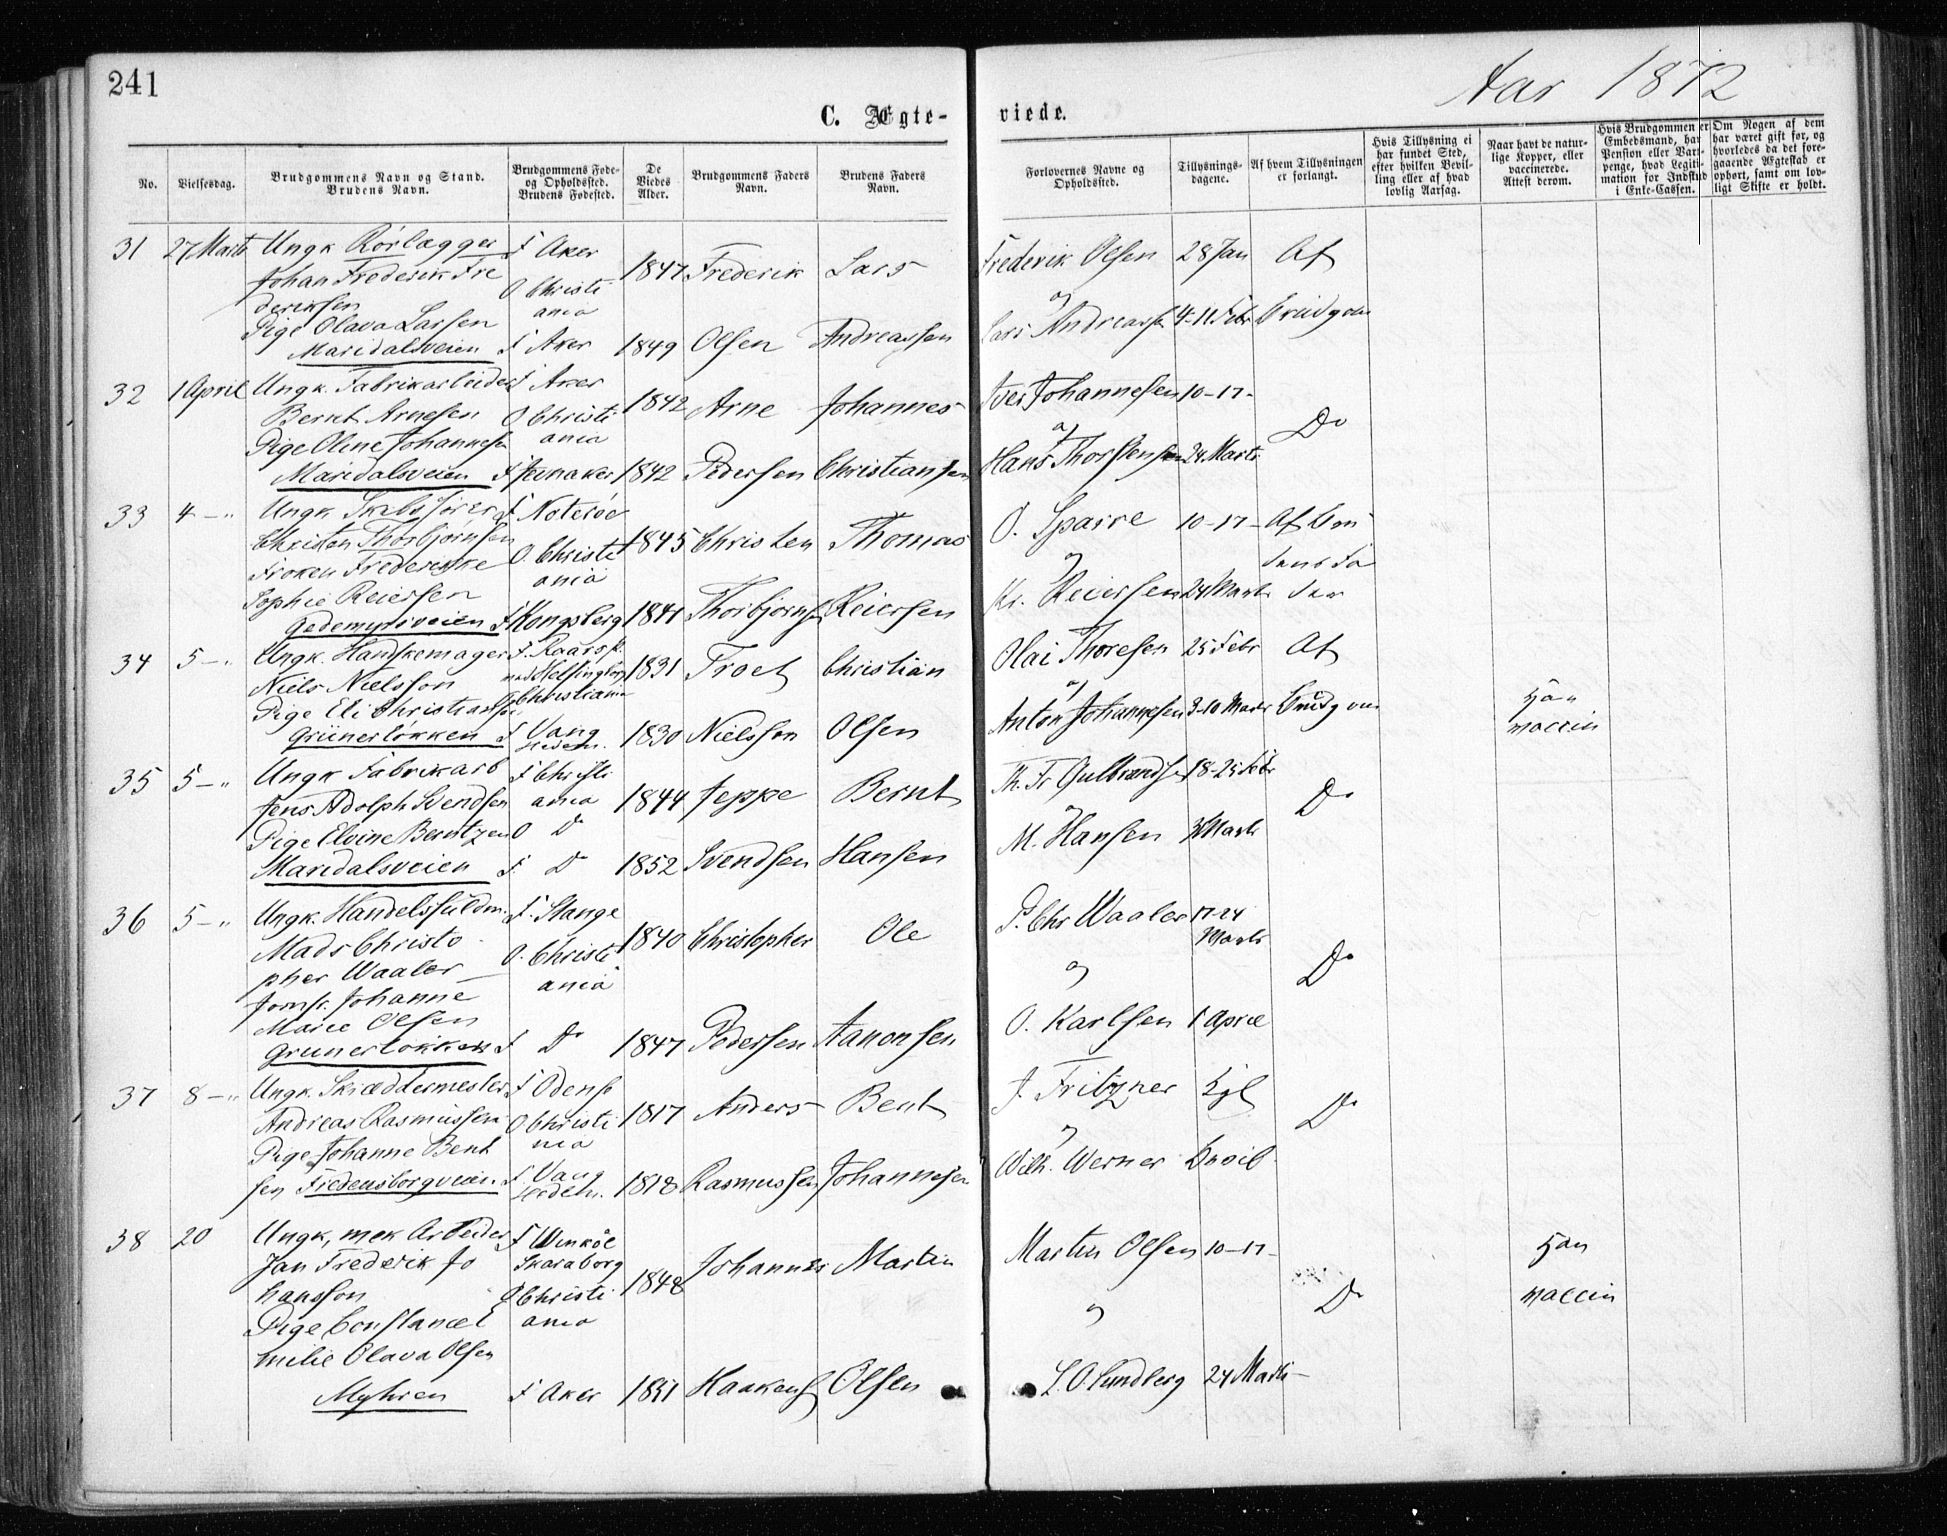 241
Aar 1872
C. Ægte-
viede.
No.
Vielsesdag.
Brudgommens Navn og Stand.
Brudens Navn.
Brudgommens Føde-
og Opholdssted.
Brudens Fødested.
De
Viedes
Alder.
Brudgommens Faders
Navn.
Brudens Faders
Navn.
Forlovernes Navne og
Opholdssted.
Tillysnings-
dagene.
Af hvem Tillysningen
er forlangt.
Hvis Tillysning ei
har fundet Sted,
efter hvilken Bevil-
ling eller af hvad
lovlig Aarsag.
Naar havt de natur-
lige Kopper, eller
vaccinerede.
Attest derom.
Hvis Brudgommen er
Embedsmand, har
Pension eller Vart-
penge, hvad Legiti-
mation for Indskud
i Enke-Cassen.
Om Nogen af dem
har været gift før, og
hvorledes da det fore-
gaaende Ægteskab er
ophørt, samt om lov-
ligt Skifte er holdt.
31 27 Marts Ungk Rørlægger F Aker 1847 Frederik Lars Frederik Olsen 28 Jan Af
Johan Frederik Fre O Christi
deriksen ania og
Pige Olava Larsen Lars Andreassen 4-11 Febr Brudgom
Maridalsveien F Aker 1849 Olsen Andreassen
32 1 April Ungk. Fabrikarbeider F Aker 1842 Arne Johannes Iver Johannesen 10-17-
Bernt Arnesen O Christi og Do
Pige Oline Johannesen ania Hans Thorstensen 24 Marts
Maridalsveien F Jevnaker 1842 Pedersen Christiansen
33 4 - " Ungk. Skibsfører F Noterøe 1845 Christen Thomas O. Sparre 10-17- Af
Christen Thorbjørnsen O. Christi og
Frøken Frederikke ania
Sophie Reiersen Kr. Reiersen 24 Marts
Gedemyrsveien F Kongsberg 1841 Thorbjørnsen Reiersen
34 5 - " Ungk. Handskemager F. 1831 Troet Christian Olai Thoresen 25 Febr Af
Niels Nielsson Helsingborg og Han
Pige Eli Christiansen Christiania Anton Johannesen 3-10 Marts Brudgom vaccin
Grünerløkken F Vang Hedem. 1830 Nielsson Olsen
35 5 - " Ungk Fabrikarb F Christi 1844 Jeppe Bernt Th. Fr Gulbrandsen 18-25 Febr
Jens Adolph Svendsen ania og Do
Pige Elvine Berntzen O Do M. Hansen 3 Marts
Maridalsveien F. Do 1852 Svendsen Hansen
36 5 - " Ungk. Handelsfuldm. F. Stange 1840 Christopher Ole P. Chr Waaler 17-24
Mads Christo O. Christi Marts
pher Waaler ania og Do
Jomfr. Johanne
Marie Olsen O. Karlsen 1 April
Grünerløkken F Do 1847 Pedersen Aanonsen
37 8 - " Ungk. Skræddermester F Odense 1817 Anders Bent J. Fritzner Kgl
Andreas Rasmussen O Christi og Do
Pige Johanne Bent nia Wilh. Werner Bevil
sen Fredensborgveien. F Vang Hedem. 1818 Rasmussen Johannesen
38 20 Ungk, mek Arbeider F 1848 Johannes Martin Martin Olsen 10-17- Han
Jan Frederik Jo Skaraborg
hansson O Christi og Do vaccin
Pige Constance E ania
milie Olava Olsen
Myhren F Aker 1851 Haakens Olsen L. O. Lundberg 24 Marts